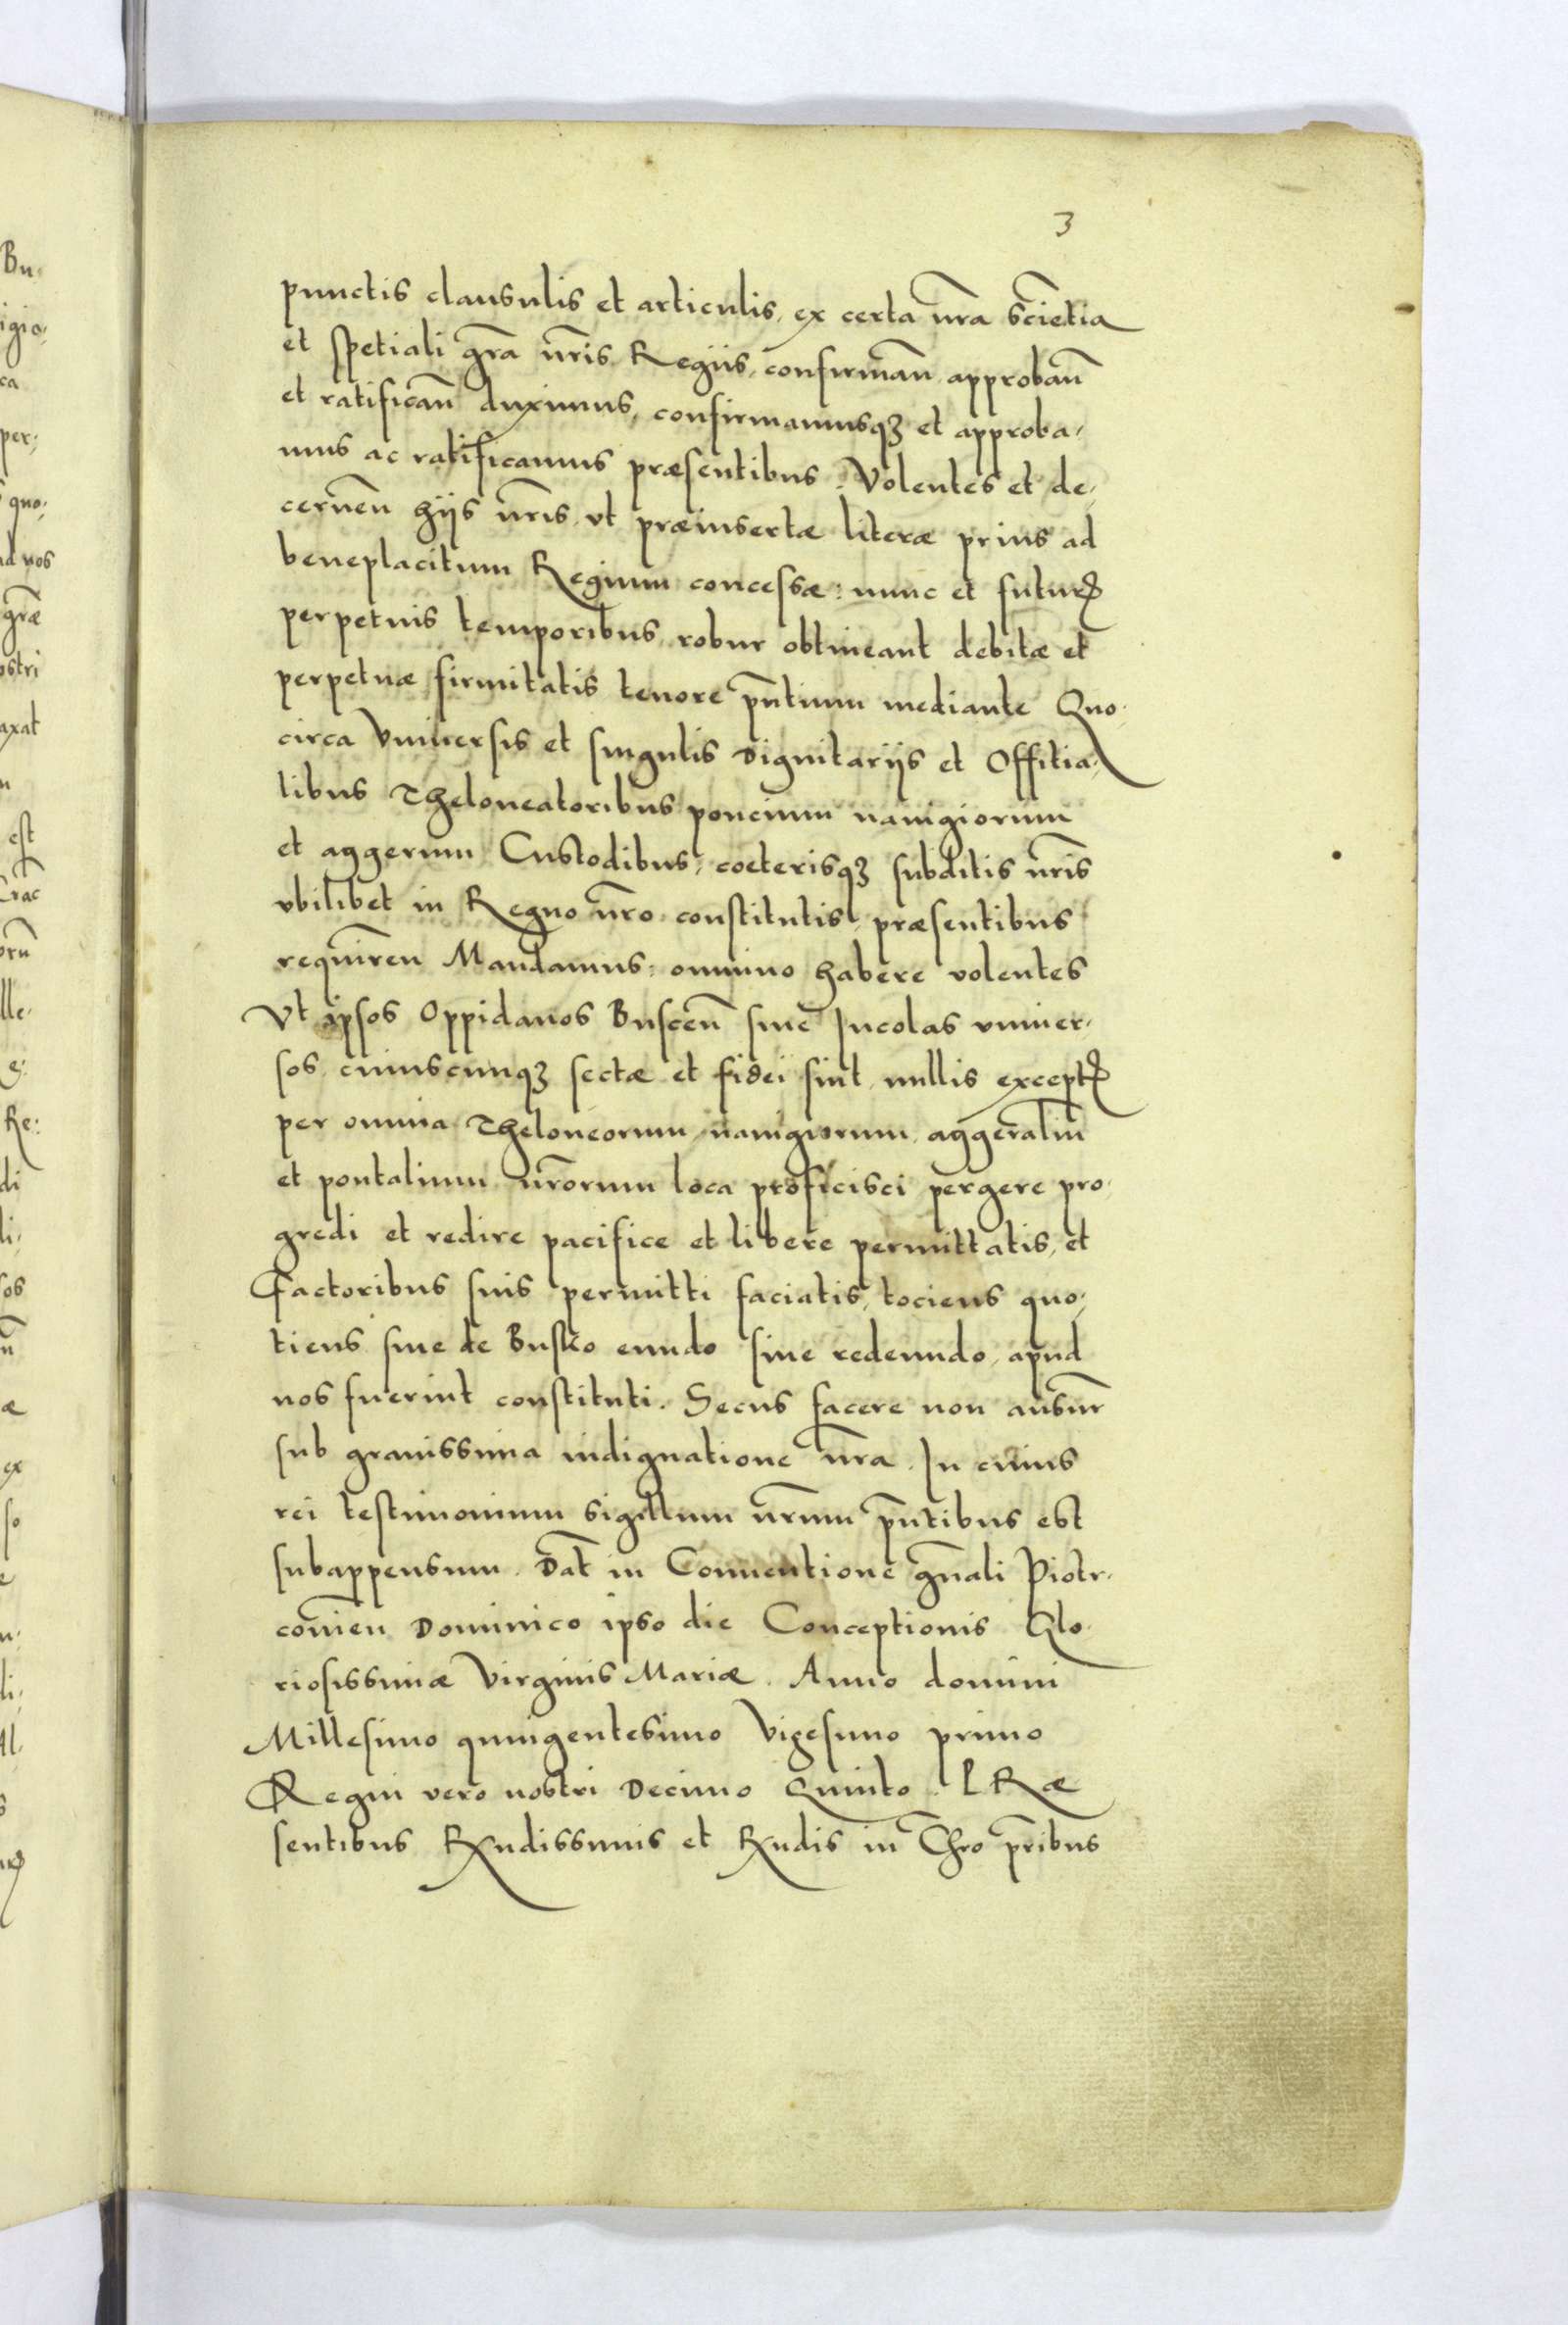 3
punctis clausulis et articulis, ex certa nr̄a sciētia
et spetiali grā nr̄is Regiis, confirmān approbān
et ratificān duximus, confirmamusqꝫ et approba,
mus ac ratificamus præsentibus. Volentes et de,
cernēn hijs nr̄is, vt præinsertæ literæ prius ad
beneplacitum Regium concessæ: nunc et futurꝭ
perpetuis temporibus, robur obtineant debitæ et
perpetuæ firmitatis tenore pn̄tium mediante Quo,
circa Vniuersis et singulis Dignitarijs et Offitia,
libus Theloneatoribus poncium nauigiorum
et aggerum Custodibus, coeterisqꝫ subditis nr̄is
vbilibet in Regno nr̄o constitutis, præsentibus
requirēn Mandamus: omnino habere volentes
Vt ipsos Oppidanos Buscēn siue Incolas vniuer,
sos, cuiuscunqꝫ sectæ et fidei sint, nullis exceptꝭ
per omnia Theloneorum, nauigiorum, aggeraliū
et pontalium nr̄orum loca proficisci pergere pro,
gredi et redire pacifice et libere permittatis, et
Factoribus suis permitti faciatis, tociens quo,
tiens siue de Busko eundo siue redeundo, apud
nos fuerint constituti. Secus facere non ausur̄
sub grauissima indignatione nr̄a. In cuius
rei testimonium sigillum nr̄um pn̄tibus est
subappensum. Dat̄ in Conuentione gn̄ali Piotr,
couīen Dominico ipso die Conceptionis Glo,
riosissimæ Virginis Mariæ. Anno domini
Millesimo quingentesimo Vigesimo primo
Regni vero nostri Decimo Quinto. PRæ
sentibus Rx̄ndissimis et Rx̄ndis in Chr̄o pr̄ibus
Bu,
igio,
ca
per,
quo,
ad nos
grǣ
ostri
axat
est
Crac̄
orū
lle,
Re:
di
li,
sos
æ
ex
so
li,
Al,